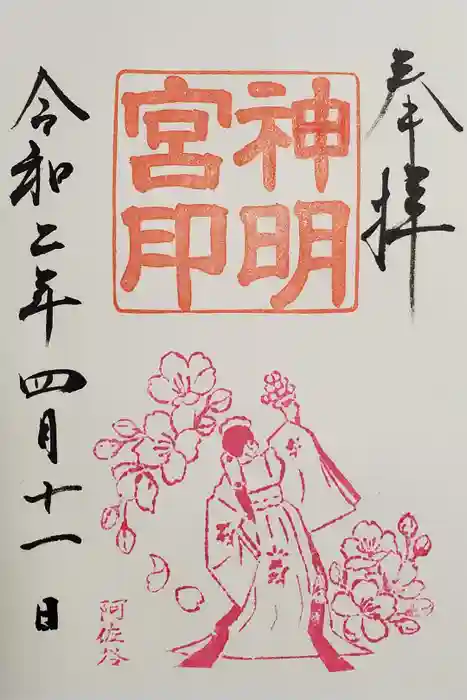 奉拝
神明
宮印
令和二年四月十一日
阿佐谷